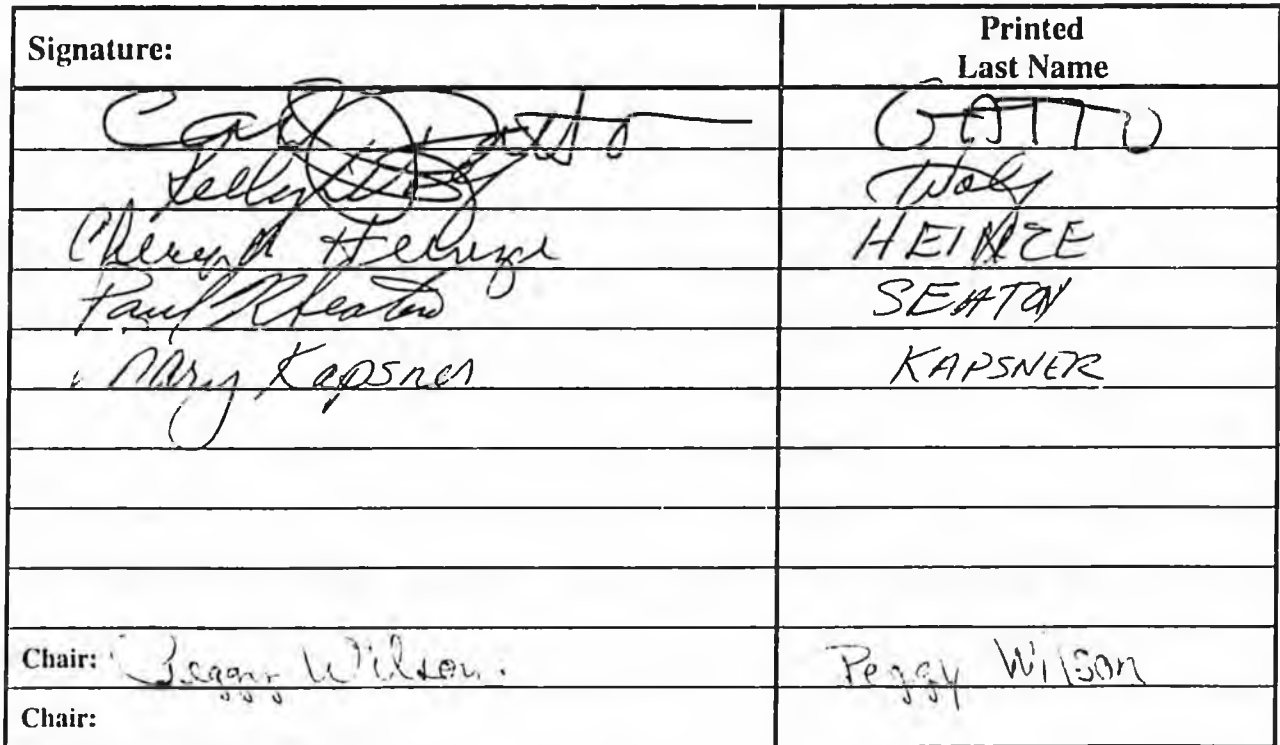 Signature: Printed Last Name
Carl Gatto GATTO
Kelly Wolf Wolf
Cheryll Heinze HEINZE
Paul K Seaton SEATON
Mary Kapsner KAPSNER
Chair: Peggy Wilson. Peggy Wilson
Chair: